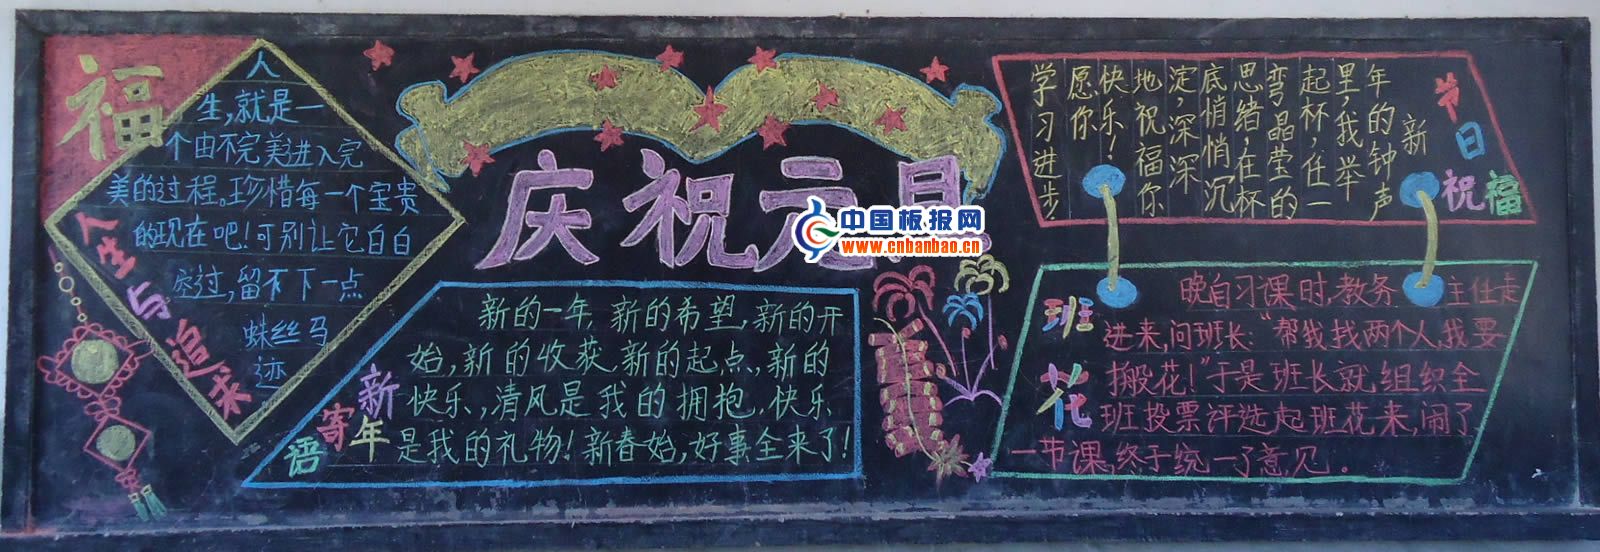 福
人
生,就是一
个由不完美进入完
美的过程。珍惜每一个宝贵
的现在吧!可别让它白白
空过,留不下一点
蛛丝马
迹
人生与追求
庆祝元旦
中国板报网
www.cnbanbao.cn
新年寄语
新的一年,新的希望,新的开
始,新的收获,新的起点,新的
快乐,清风是我的拥抱,快乐
是我的礼物!新春始,好事全来了!
节日祝福
新
年的钟声
里,我举
起杯,任一
弯晶莹的
思绪,在杯
底悄悄沉
淀,深深
地祝福你
快乐!
愿你
学习进步!
班花
晚自习课时,教务主任走
进来,问班长:“帮我找两个人,我要
搬花!”于是班长就,组织全
班投票评选起班花来,闹了
一节课,终于统一了意见.